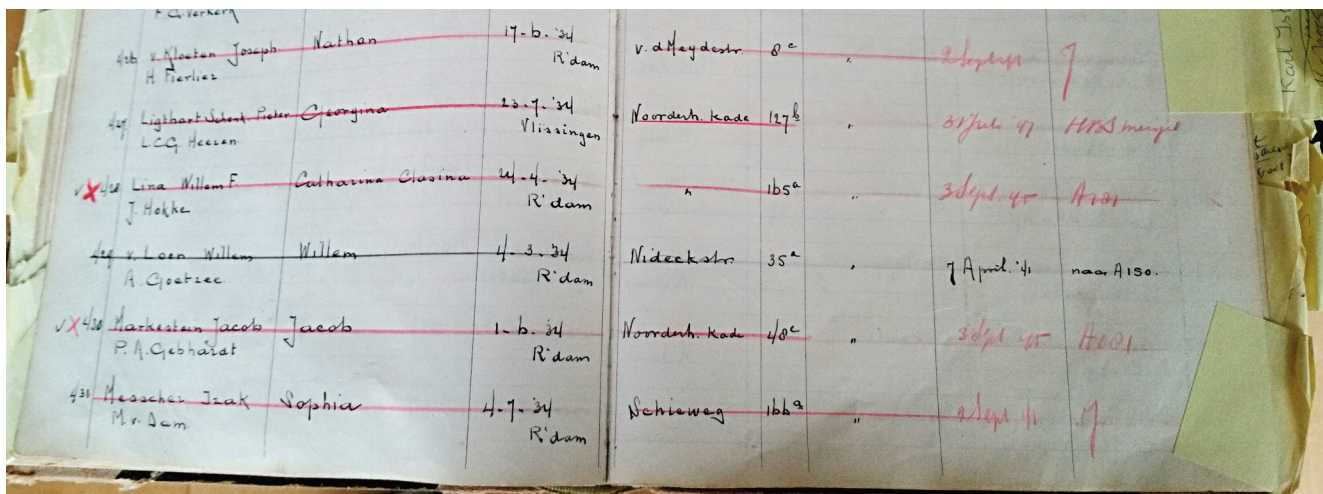 F.G. Verkerk
426 v. Kloeten Joseph Nathan 17-6-'34 v.d Meydestr. 8c " 2 Sept 41 J
H. Fierlier R'dam
427 Ligthart Schenk Pieter Georgina 23-7-'34 Noorderh. kade 127b " 31 Juli '47 HBS meisjes
L.C.G. Heezen Vlissingen
v X 428 Lina Willem F. Catharina Clasina 24-4-'34 " 165a " 3 Sept. 45 A101
J. Hokke R'dam
429 v. Loen Willem Willem 4-3-34 Nideckstr. 35a " 7 April. '41 naar A150.
A. Goetzee R'dam
v X 430 Markestein Jacob Jacob 1-6-34 Noorderh. kade 48c " 3 Sept 45 A101
P. A. Gebhardt R'dam
431 Messcher Izak Sophia 4-7-'34 Schieweg 166a " 2 Sept 41 J
Mr. Dam R'dam
Karl